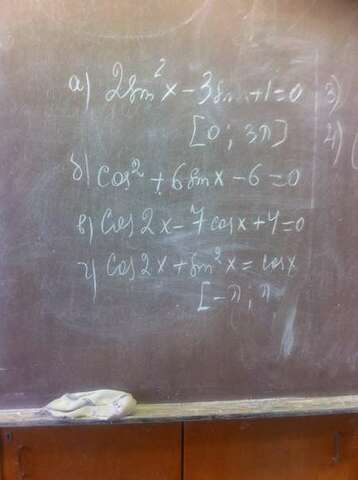 а) 2sin²x - 3sin+1=0 3)
[0; 3π] 4)
б) cos² + 6sinx - 6 = 0
в) Cos2x - 7cosx + 4 = 0
г) Cos2x + sin²x = cosx
[-π; π